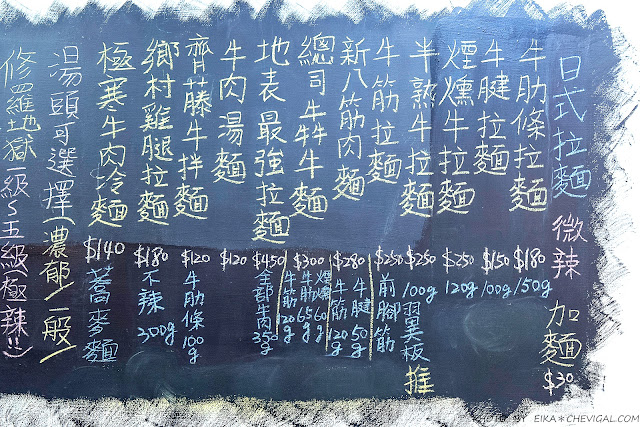 日式拉麵 微辣 加麵 $30
牛肋條拉麵 $180 150g
牛腱拉麵 $150 100g
煙燻牛拉麵 $250 120g
半熟牛拉麵 $250 100g 翼板 推
牛筋拉麵 $250 前腳筋
新八筋肉麵 $280 牛腱50g 牛筋120g
總司牛牪牛麵 $300 煙燻60g 牛肋65g 牛筋20g
地表最強拉麵 $450 全部牛肉350g
牛肉湯麵 $120
齊藤牛拌麵 $120 牛肋條100g
鄉村雞腿拉麵 $180 不辣 300g
極寒牛肉冷麵 $140 蕎麥麵
湯頭可選擇(濃郁/一般)
修羅地獄一級~五級極辣!!
BY EIKA*CHEVIGAL.COM